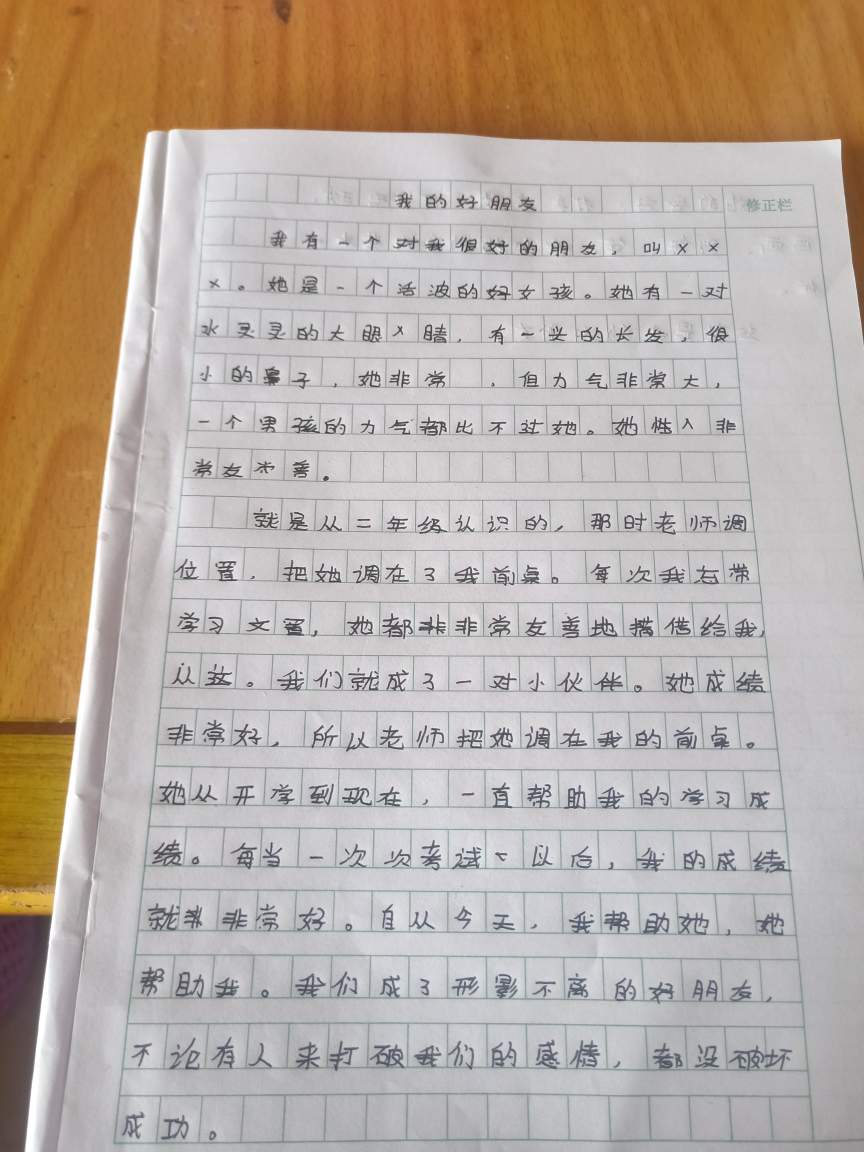 我的好朋友
修正栏
我有一个对我很好的朋友，叫××
×。她是一个活波的好女孩。她有一对
水灵灵的大眼×睛，有一头的长发，很
小的鼻子，她非常，但力气非常大，
一个男孩的力气都比不过她。她性入非
常友善。
就是从二年级认识的，那时老师调
位置，把她调在了我前桌。每次我忘带
学习文置，她都非非常友善地借给我，
从这。我们就成了一对小伙伴。她成绩
非常好，所以老师把她调在我的前桌。
她从开学到现在，一直帮助我的学习成
绩。每当一次次考试以后，我的成绩
就非常好。自从今天，我帮助她，她
帮助我。我们成了形影不离的好朋友，
不论有人来打破我们的感情，都没破坏
成功。